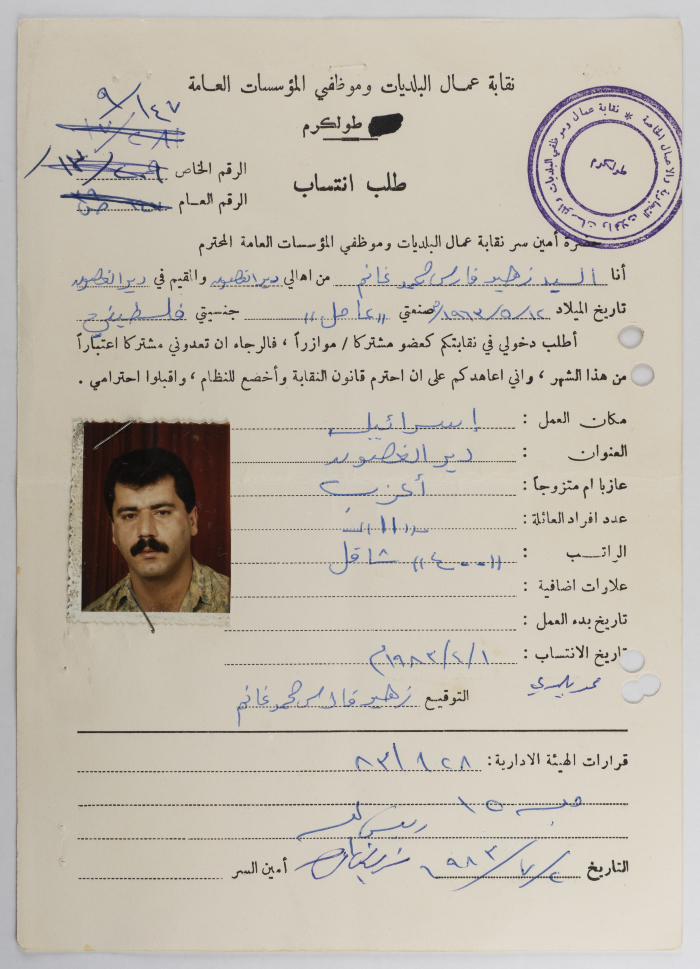 نقابة عمال البلديات وموظفي المؤسسات العامة
طولكرم
٩/١٤٧
الرقم الخاص
الرقم العام
طلب انتساب
نقابة عمال وموظفي البلديات
طولكرم
حضرة أمين سر نقابة عمال البلديات وموظفي المؤسسات العامة المحترم
أنا السيد زهير فارس محمد غانم من اهالي دير الغصون والمقيم في دير الغصون
تاريخ الميلاد ١٩٦٣/٥/١٢م صنعتي "عامل" جنسيتي فلسطيني
أطلب دخولي في نقابتكم كعضو مشتركا / موازراً ، فالرجاء ان تعدوني مشتركا اعتباراً
من هذا الشهر ، واني اعاهدكم على ان احترم قانون النقابة وأخضع للنظام ، واقبلوا احترامي .
مكان العمل : إسرائيل
العنوان : دير الغصون
عازبا ام متزوجاً : أعزب
عدد افراد العائلة : "١١"
الراتب : "٤٠٠٠" شاقل
علاوات اضافية :
تاريخ بدء العمل :
تاريخ الانتساب : ١٩٨٣/٢/١م
التوقيع زهير فارس محمد غانم
قرارات الهيئة الادارية : ٢٨
١٥
التاريخ أمين السر